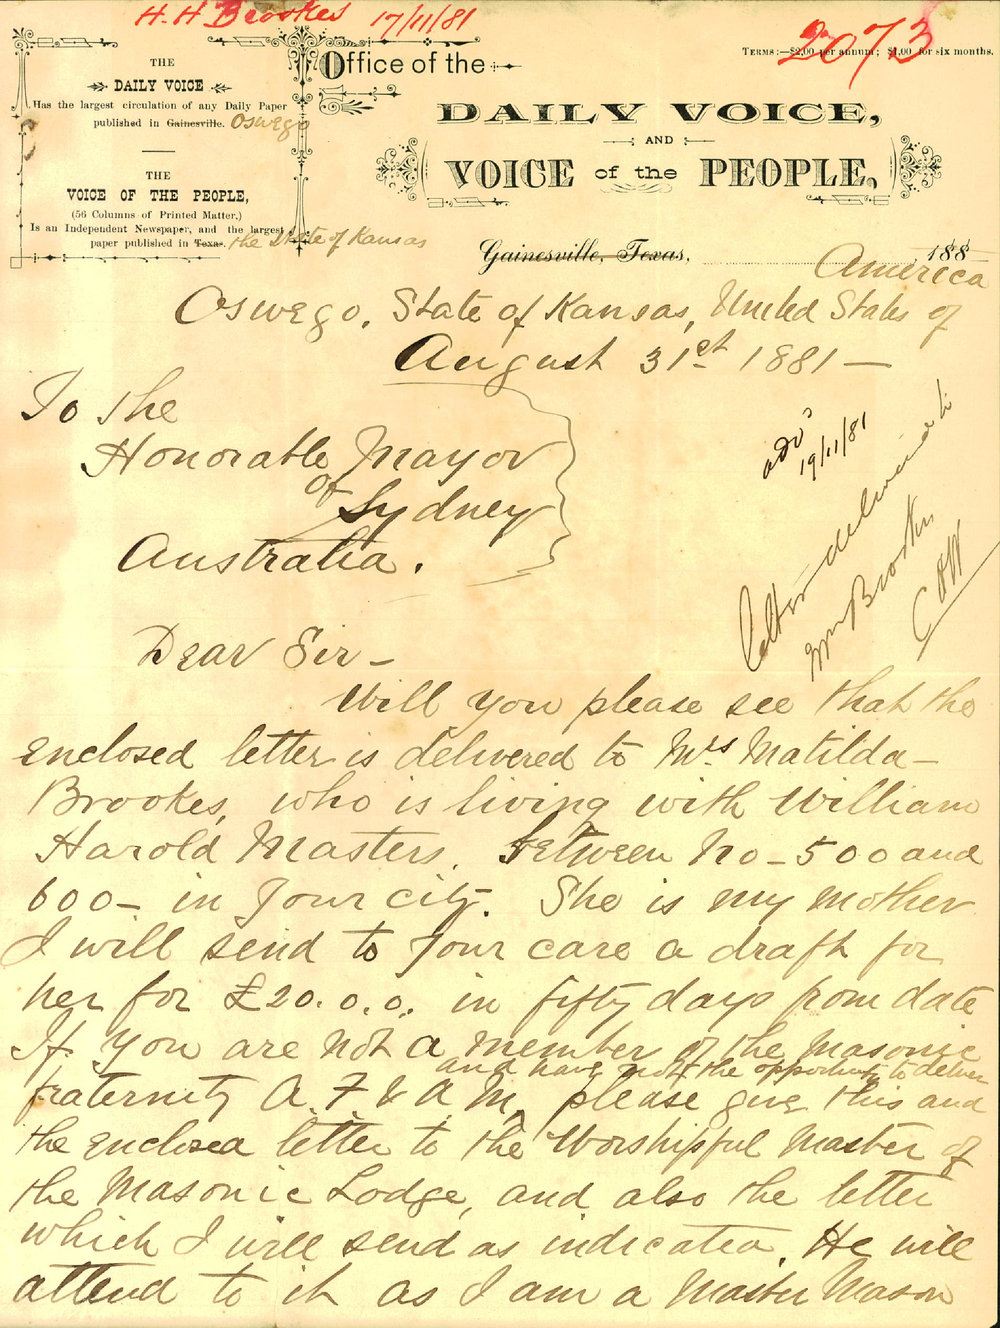 H. H Brookes 17/11/81
2073
TERMS:—$2,00 per annum; $1,00 for six months.
THE
DAILY VOICE
Has the largest circulation of any Daily Paper
published in Gainesville. Oswego
THE
VOICE OF THE PEOPLE,
(56 Columns of Printed Matter.)
Is an Independent Newspaper, and the largest
paper published in Texas. the State of Kansas
Office of the
DAILY VOICE,
AND
VOICE of the PEOPLE,
Gainesville, Texas, 188
America
Oswego, State of Kansas, United States of
August 31st 1881—
To the
Honorable Mayor
of Sydney
Australia.
adv's
19/11/81
Letter delivered to
Mrs Brookes
Dear Sir—
Will you please see that the
enclosed letter is delivered to Mrs Matilda—
Brookes, who is living with William
Harold Masters. between No—500 and
600— in your city. She is my mother
I will send to your care a draft for
her for £20.0.0. in fifty days from date
If you are not a member of the Masonic
and have not the opportunity to deliver
fraternity A. F & A M, please give this and
the enclosed letter to the Worshipful Master of
the Masonic Lodge, and also the letter
which I will send as indicated. He will
attend to it as I am a Master Mason